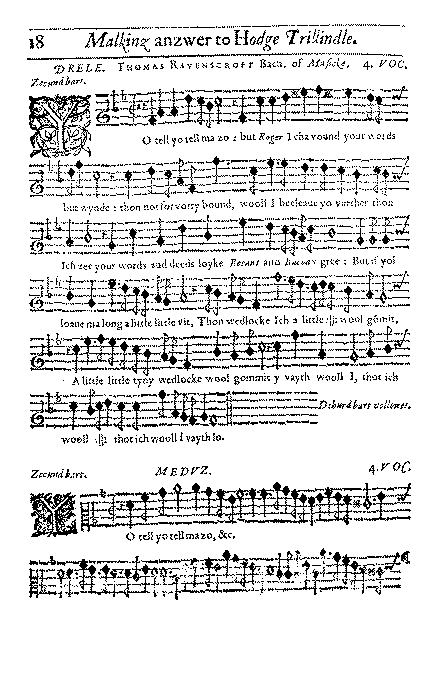 18 Malkinz anzwer to Hodge Trillindle.
DRELE. THOMAS RAVENSCROFT Bach. of Musicke. 4. VOC.
Zecund bart.
YO tell yo tell ma zo : but Roger I cha vound your words
but wynde : thon not for vorty pound, wooll I beeleaue yo varther thon
Ich zee your words and deeds loyke Beeans and Bacon gree : But if yol
loaue ma long a little little vit, Thon wedlocke Ich a little :||: wool gómit,
A little little tyny wedlocke wool gommit y vayth wooll I, thot ich
Dhurd bart vollowes.
wooll :||: thot ich wooll I vayth lo.
Zecund bart. MEDVZ. 4. VOC.
YO tell yo tell ma zo, &c.